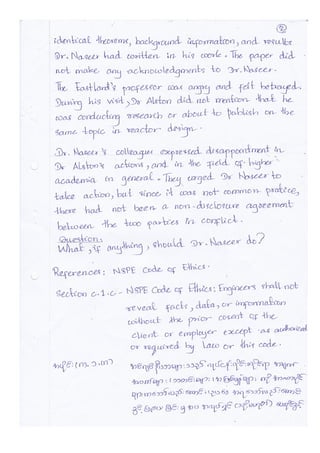 ②
identical theorems, background information, and results
Dr. Naseer had written in his work. The paper did
not make any acknowledgments to Dr. Naseer.
The Eastland's professor was angry and felt betrayed.
During his visit, Dr Alston did not mention that he
was conducting research or about to publish on the
same topic in reactor design.
Dr. Naseer's colleague expressed disappointment in
Dr Alston's actions, and in the field of higher
academia in general. They urged Dr Naseer to
take action, but since it was not common pratice,
there had not been a non-disclosure agreement
between the two parties in conflict.
Question:
What, if anything, should Dr. Naseer do?
References: NSPE Code of Ethics.
Section c.1.c - NSPE Code of Ethics: Engineers shall not
reveal facts, data, or information
without the prior consent of the
client or employer except as authorized
or required by Law or this code.